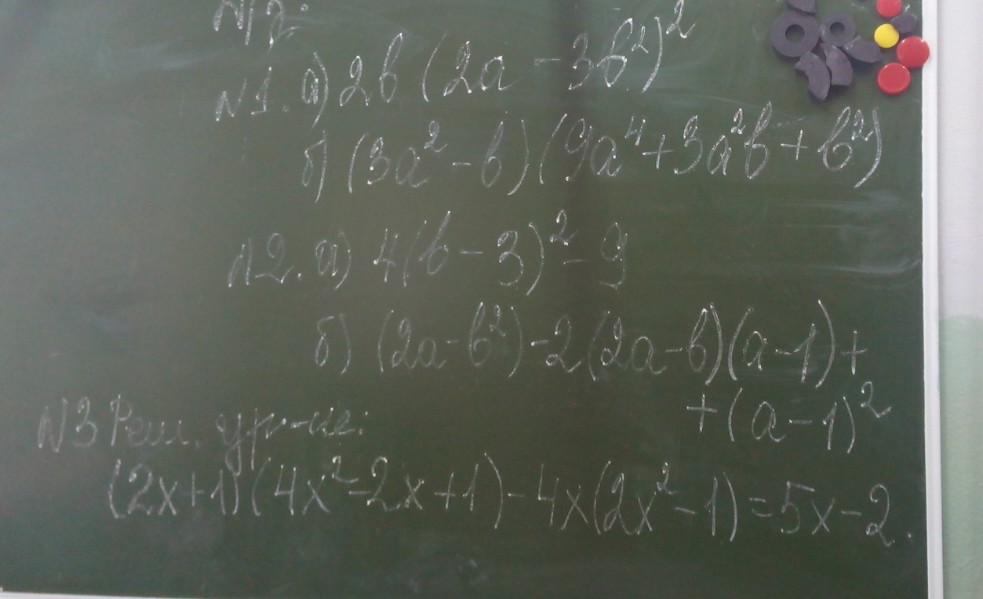 N1. а) 2b(2a - 3b²)²
б) (3a² - b)(9a⁴ + 3a²b + b²)
N2. а) 4(b - 3)² - 9
б) (2a - b²) - 2(2a - b)(a - 1) +
+ (a - 1)²
N3 Реш. ур-не:
(2x + 1)(4x² - 2x + 1) - 4x(2x² - 1) = 5x - 2.